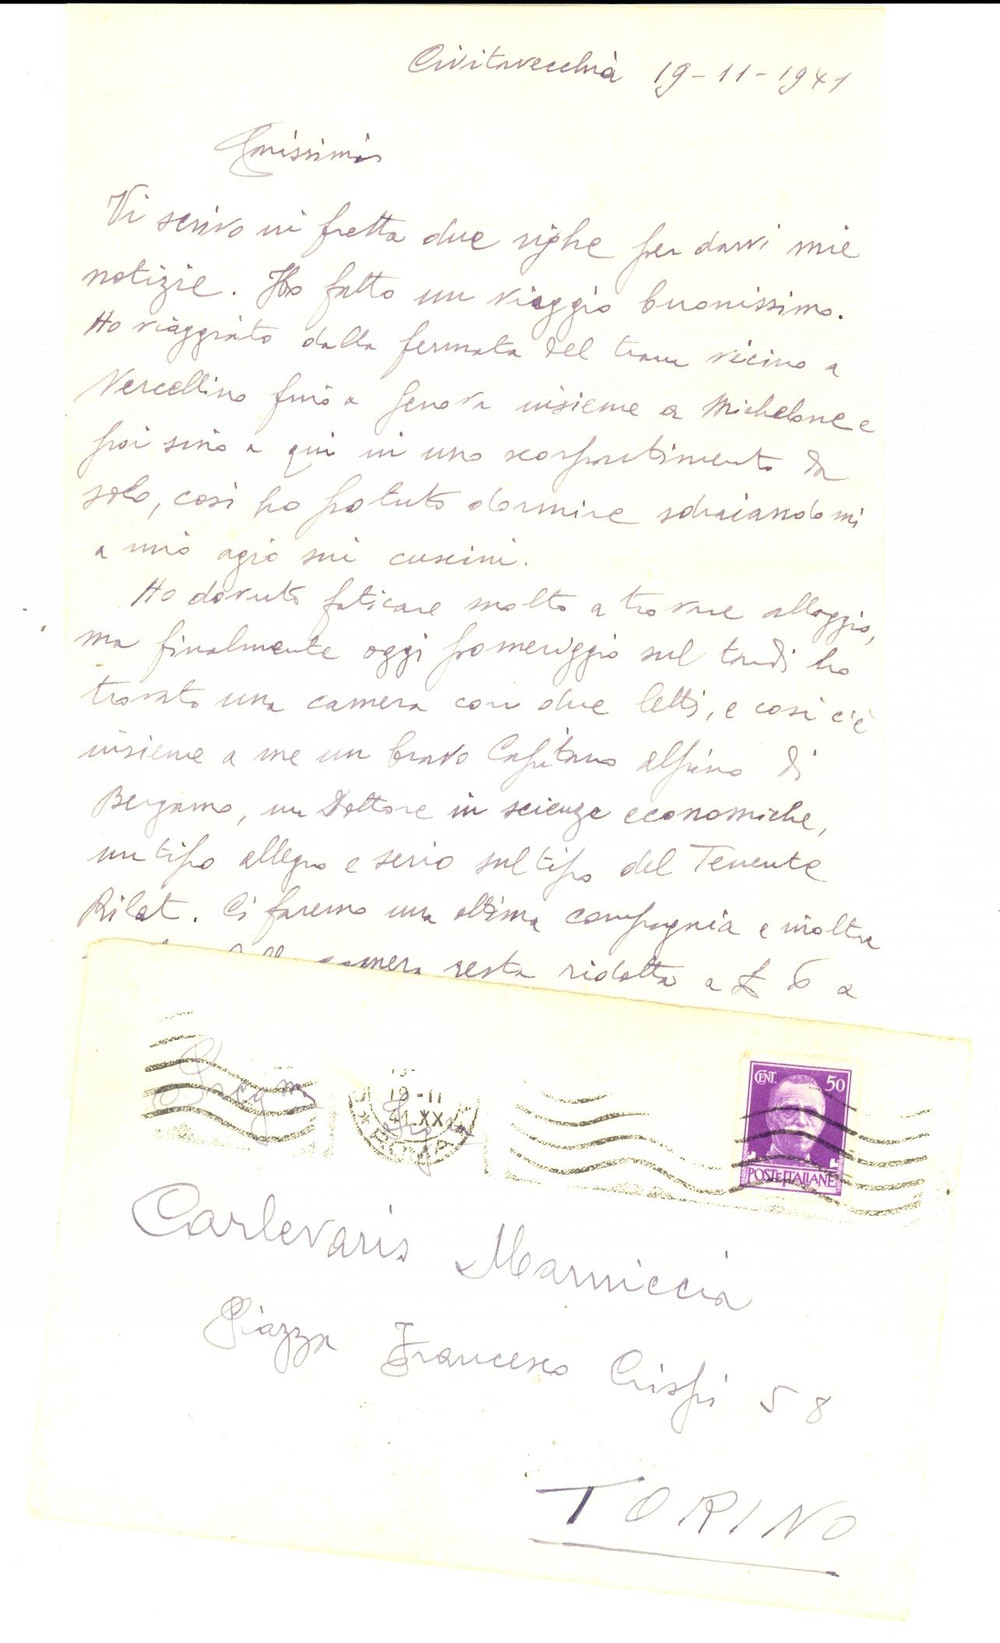 Civitavecchia 19-11-1941
Carissimi
Vi scrivo in fretta due righe per darvi mie
notizie. Ho fatto un viaggio buonissimo.
Ho viaggiato dalla fermata del tram vicino a
Vercellino fino a Genova insieme a Michelone e
poi sino a qui in uno scompartimento da
solo, così ho potuto dormire sdraiandomi
a mio agio sui cuscini.
Ho dovuto faticare molto a trovare alloggio,
ma finalmente oggi pomeriggio sul tardi ho
trovato una camera con due letti, e così c'è
insieme a me un bravo Capitano alpino di
Bergamo, un Dottore in scienze economiche,
un tipo allegro e serio sul tipo del Tenente
Rilat. Ci faremo una ottima compagnia e inoltre
camera resta ridotta a £ 6 a
CENT. 50
POSTE ITALIANE
19-11
41-XX
ROMA
Carlevaris Marniccia
Piazza Francesco Crispi 58
TORINO